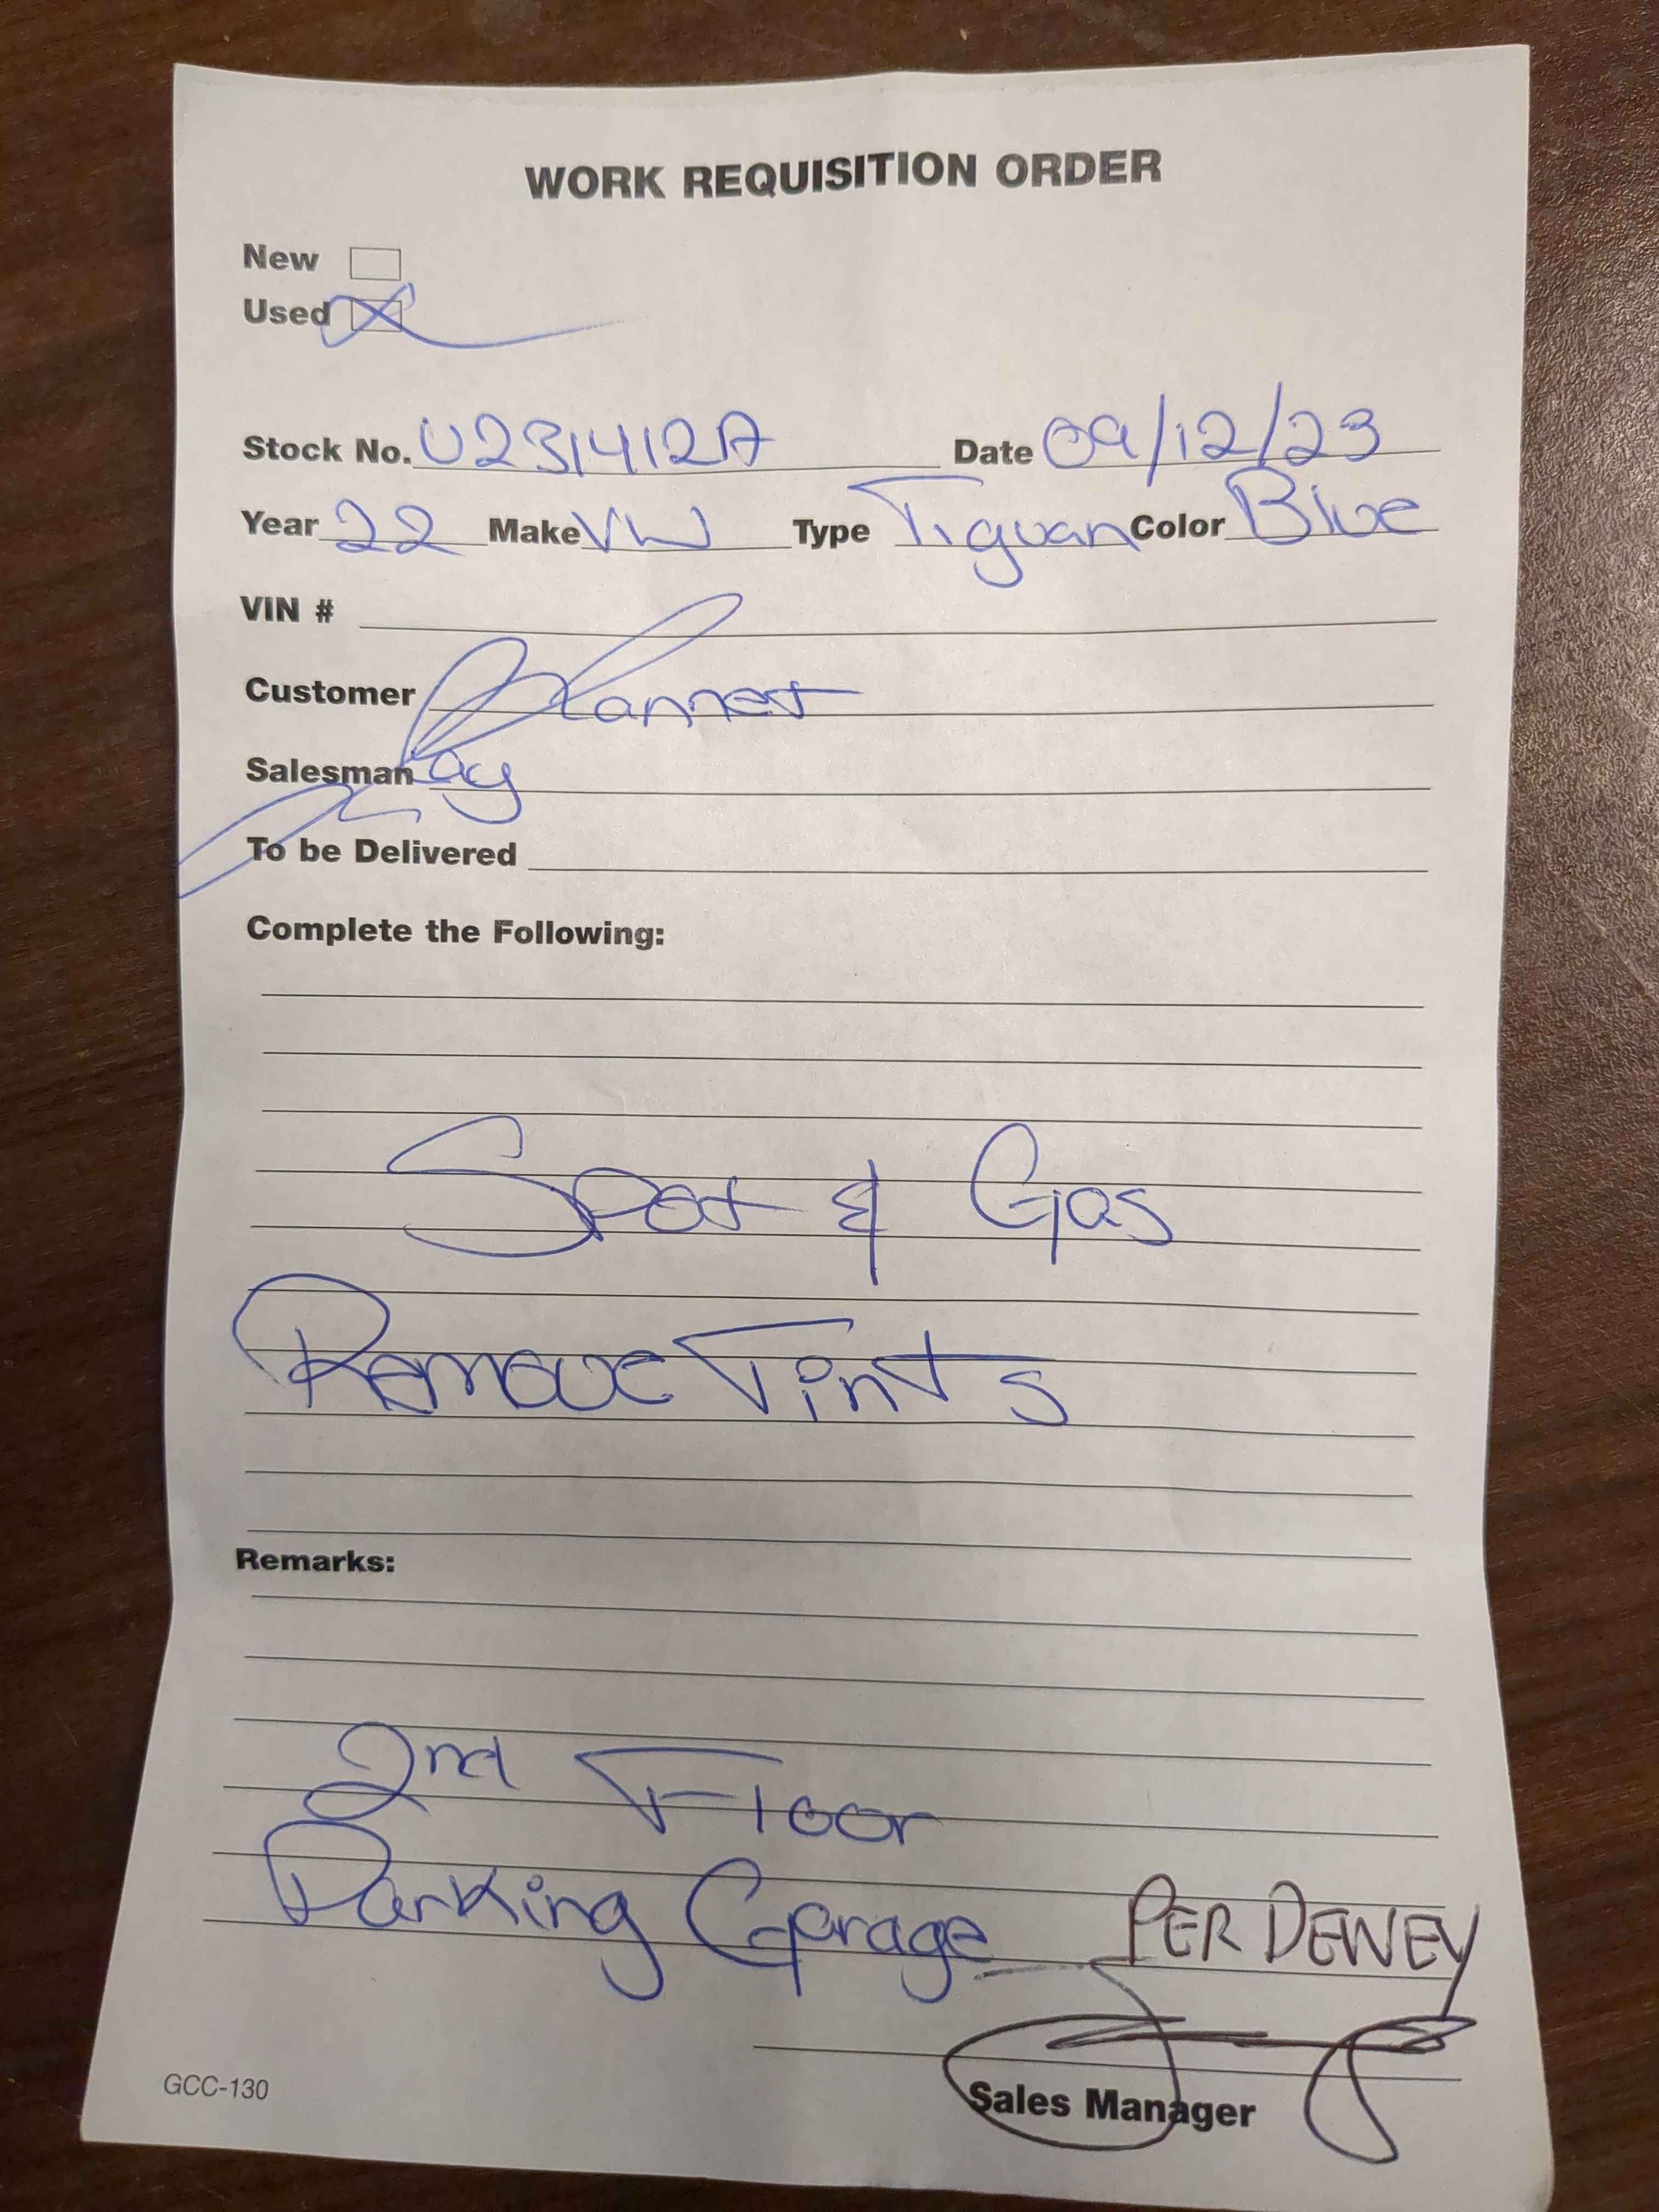 WORK REQUISITION ORDER
New
Used
Stock No. U231412A Date 09/12/23
Year 22 Make VW Type Tiguan Color Blue
VIN #
Customer
Salesman
To be Delivered
Complete the Following:
Spot & Gas
Remove Tints
Remarks:
2nd Floor
Parking Garage PER DEWEY
Sales Manager
GCC-130